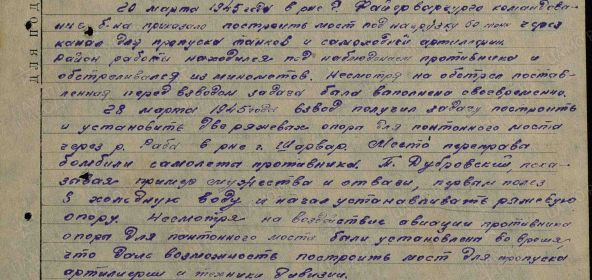 20 марта 1945 года в р-не г. командова-
ние б-на приказало построить мост под нагрузку 60 тонн через
канал для пропуска танков и самоходной артиллерии.
Район работы находился под наблюдением противника и
обстреливался из минометов. Несмотря на обстрел постав-
ленная перед взводом задача была выполнена своевременно.
28 марта 1945 года взвод получил задачу построить
и установить две ряжевых опоры для понтонного моста
через р. Раба в р-не г. Шарвар. Место переправы
бомбили самолеты противника. Т. Дубровский, пока-
зывая пример мужества и отваги, первым полез
в холодную воду и начал устанавливать ряжевую
опору. Несмотря на воздействие авиации противника
опора для понтонного моста были установлена во время,
что дало возможность построить мост для пропуска
артиллерии и техники дивизии.
ДЛЯ ПОД